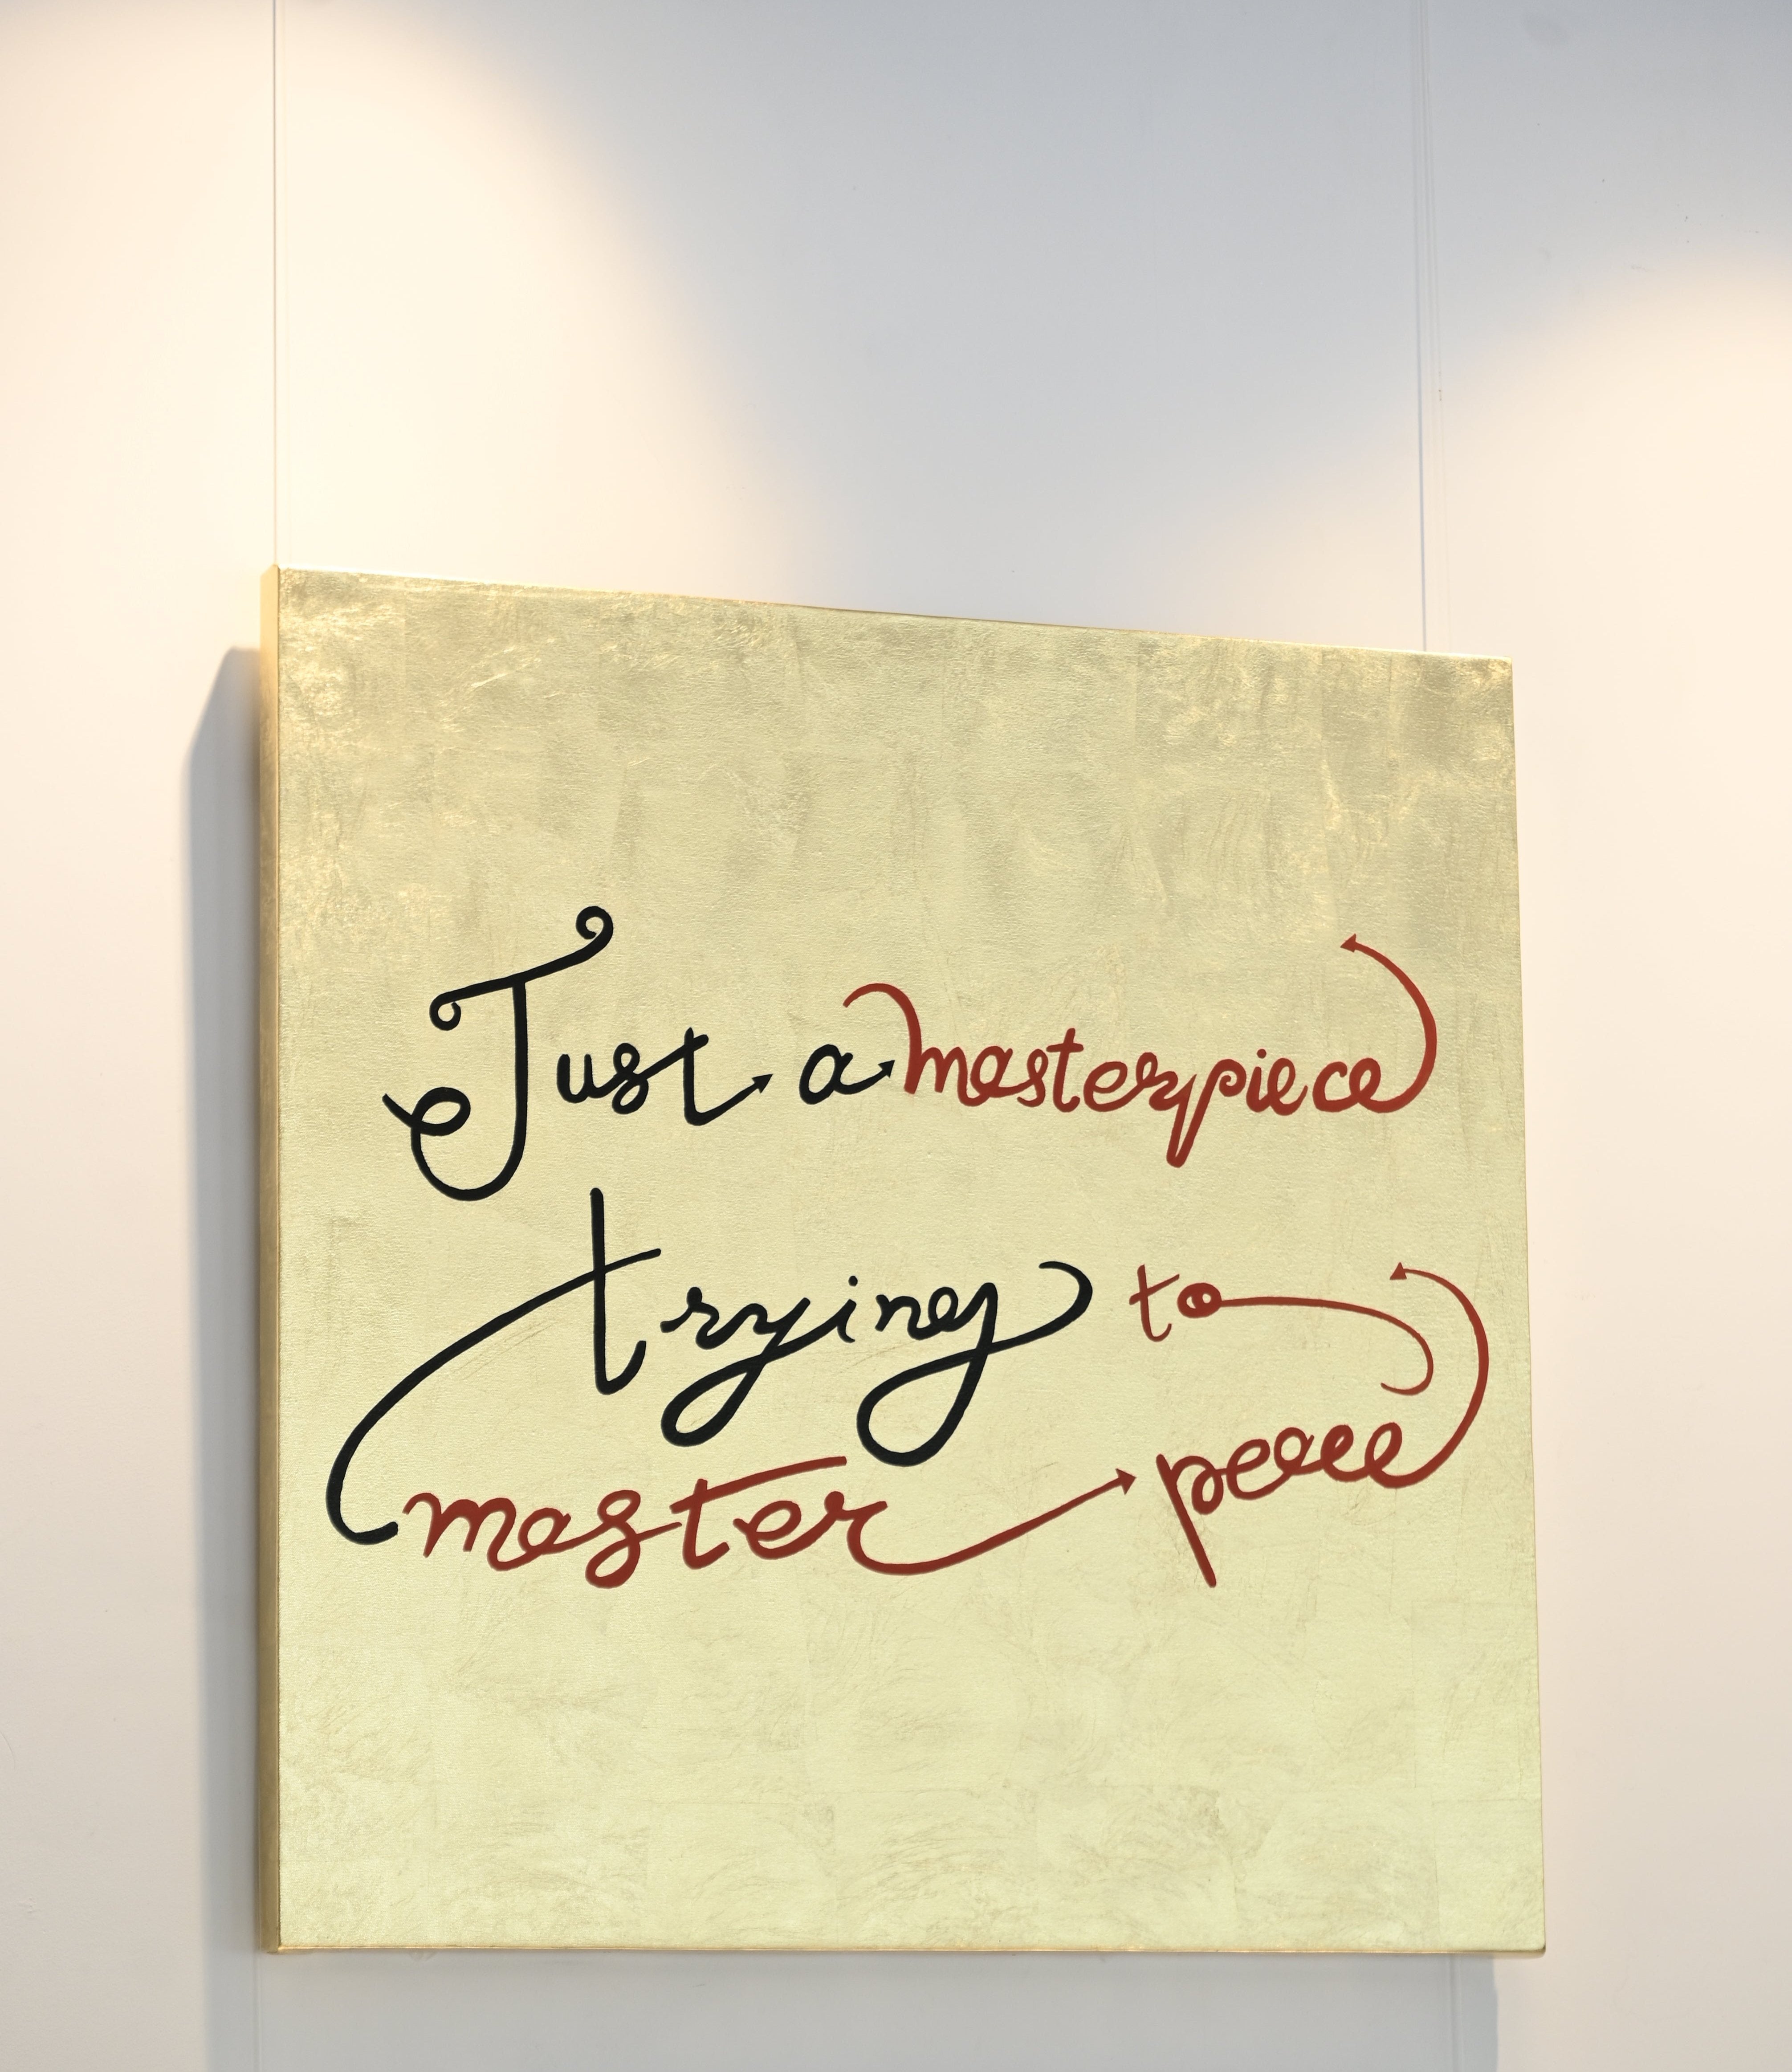 Just a masterpiece
trying to
master peace